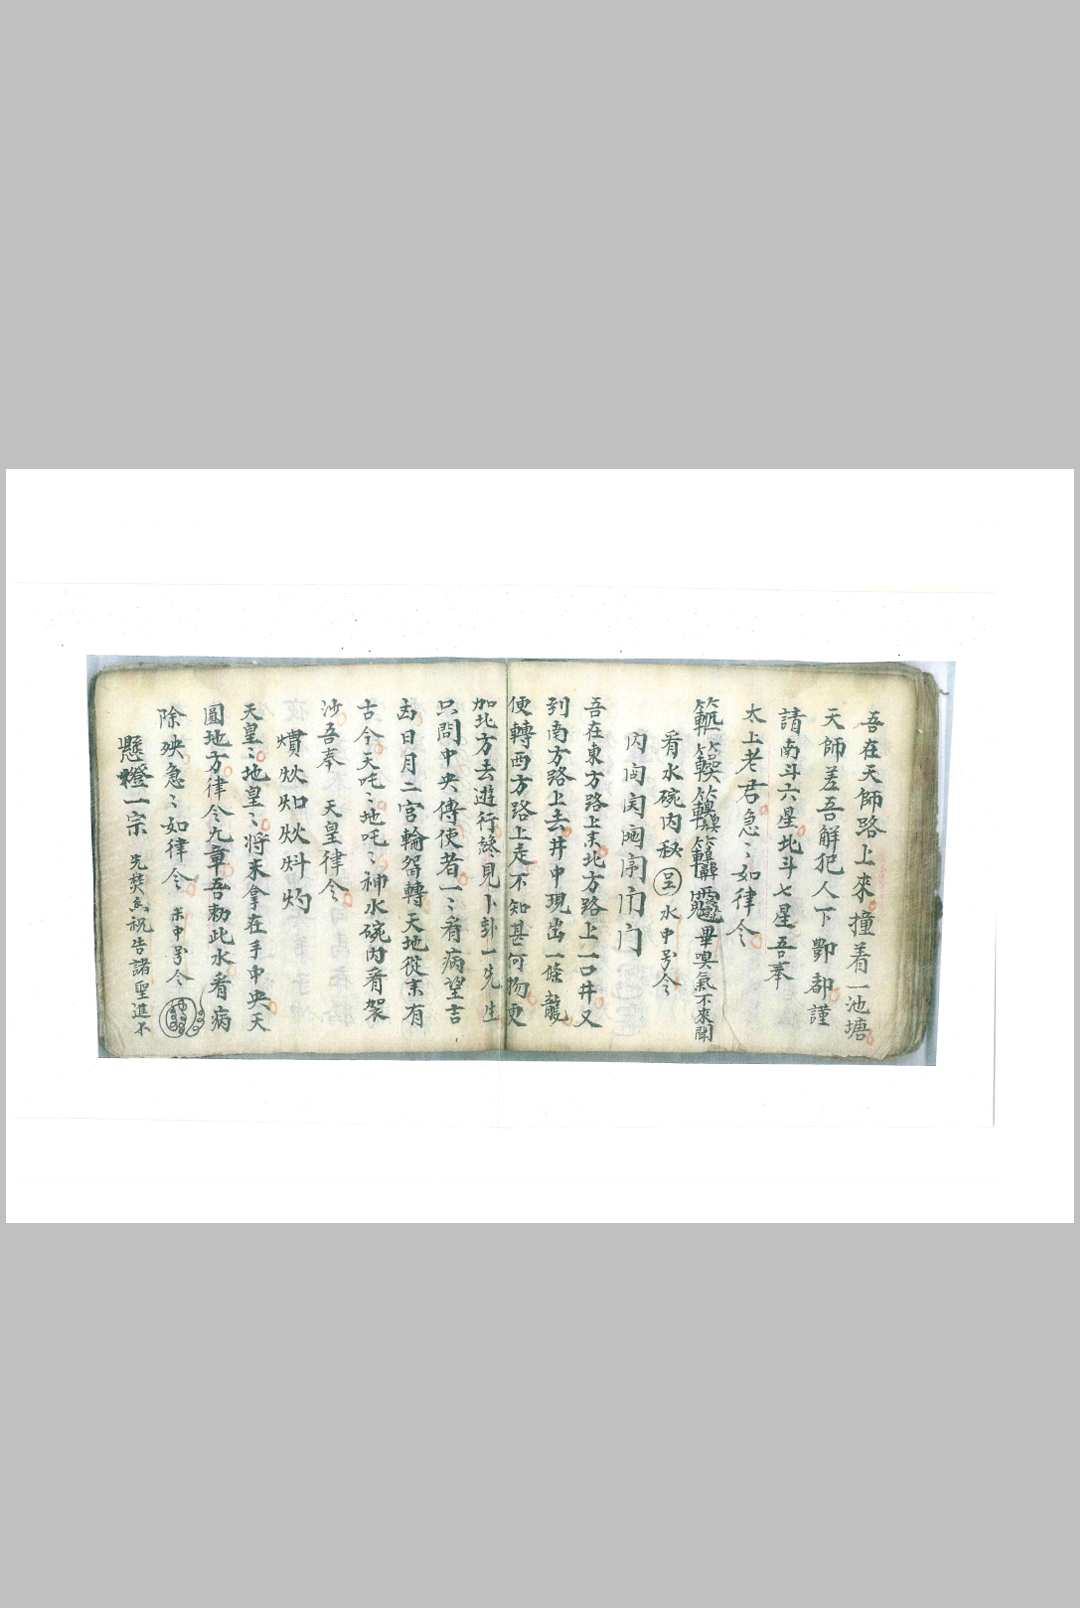 吾在天師路上來撞着一池塘
天師差吾解犯人下酆都謹
請南斗六星北斗七星吾奉
太上老君急〻如律令
畢嗅氣不來聞
看水碗内秘 水中号令
吾在東方路上去北方路上一口井又
到南方路上去井中現出一條龍
便轉西方路上走不知甚何物更
加北方去遊行 見卜卦一先生
只問中央傳使者一〻看病望吉
古日月二宮輪畨轉天地從來有
古今天吒〻地吒〻神水碗内看袈
沙吾奉 天皇律令
天皇〻地皇〻將來拿在手中央天
圓地方律令九章吾勅此水看病
除殃急〻如律令 中号令
懸橙一宗 先焚 祝告諸聖進不